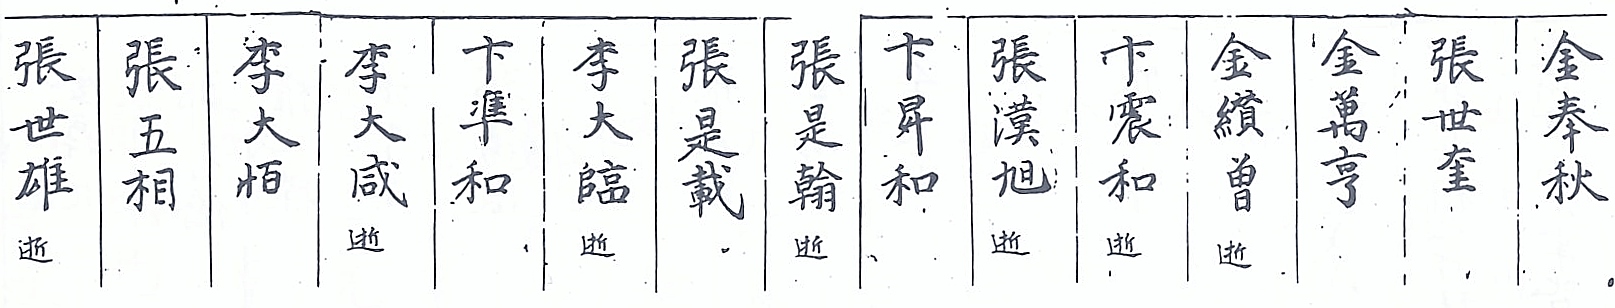 金奉秋
張世奎
金萬亨
金纘曾 逝
卞震和 逝
張漢旭 逝
卞昇和
張是翰 逝
張是載
李大臨 逝
卞準和
李大咸 逝
李大恒
張五相
張世雄 逝